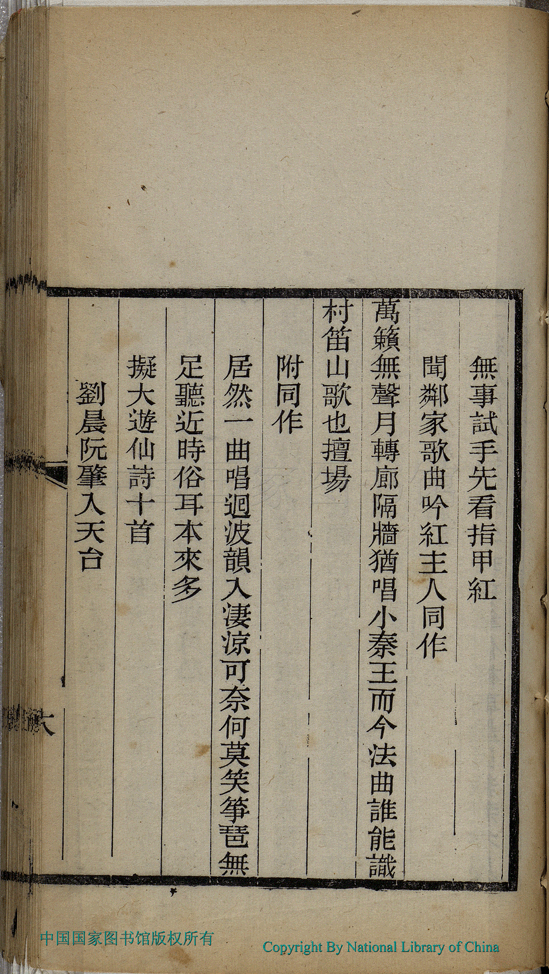 無事試手先看指甲紅
聞鄰家歌曲吟紅主人同作
萬籟無聲月轉廊隔牆猶唱小秦王而今法曲誰能識
村笛山歌也擅場
附同作
居然一曲唱迴波韻入淒涼可奈何莫笑箏琶無
足聽近時俗耳本來多
擬大遊仙詩十首
劉晨阮肇入天台
六
中国国家图书馆版权所有
Copyright By National Library of China